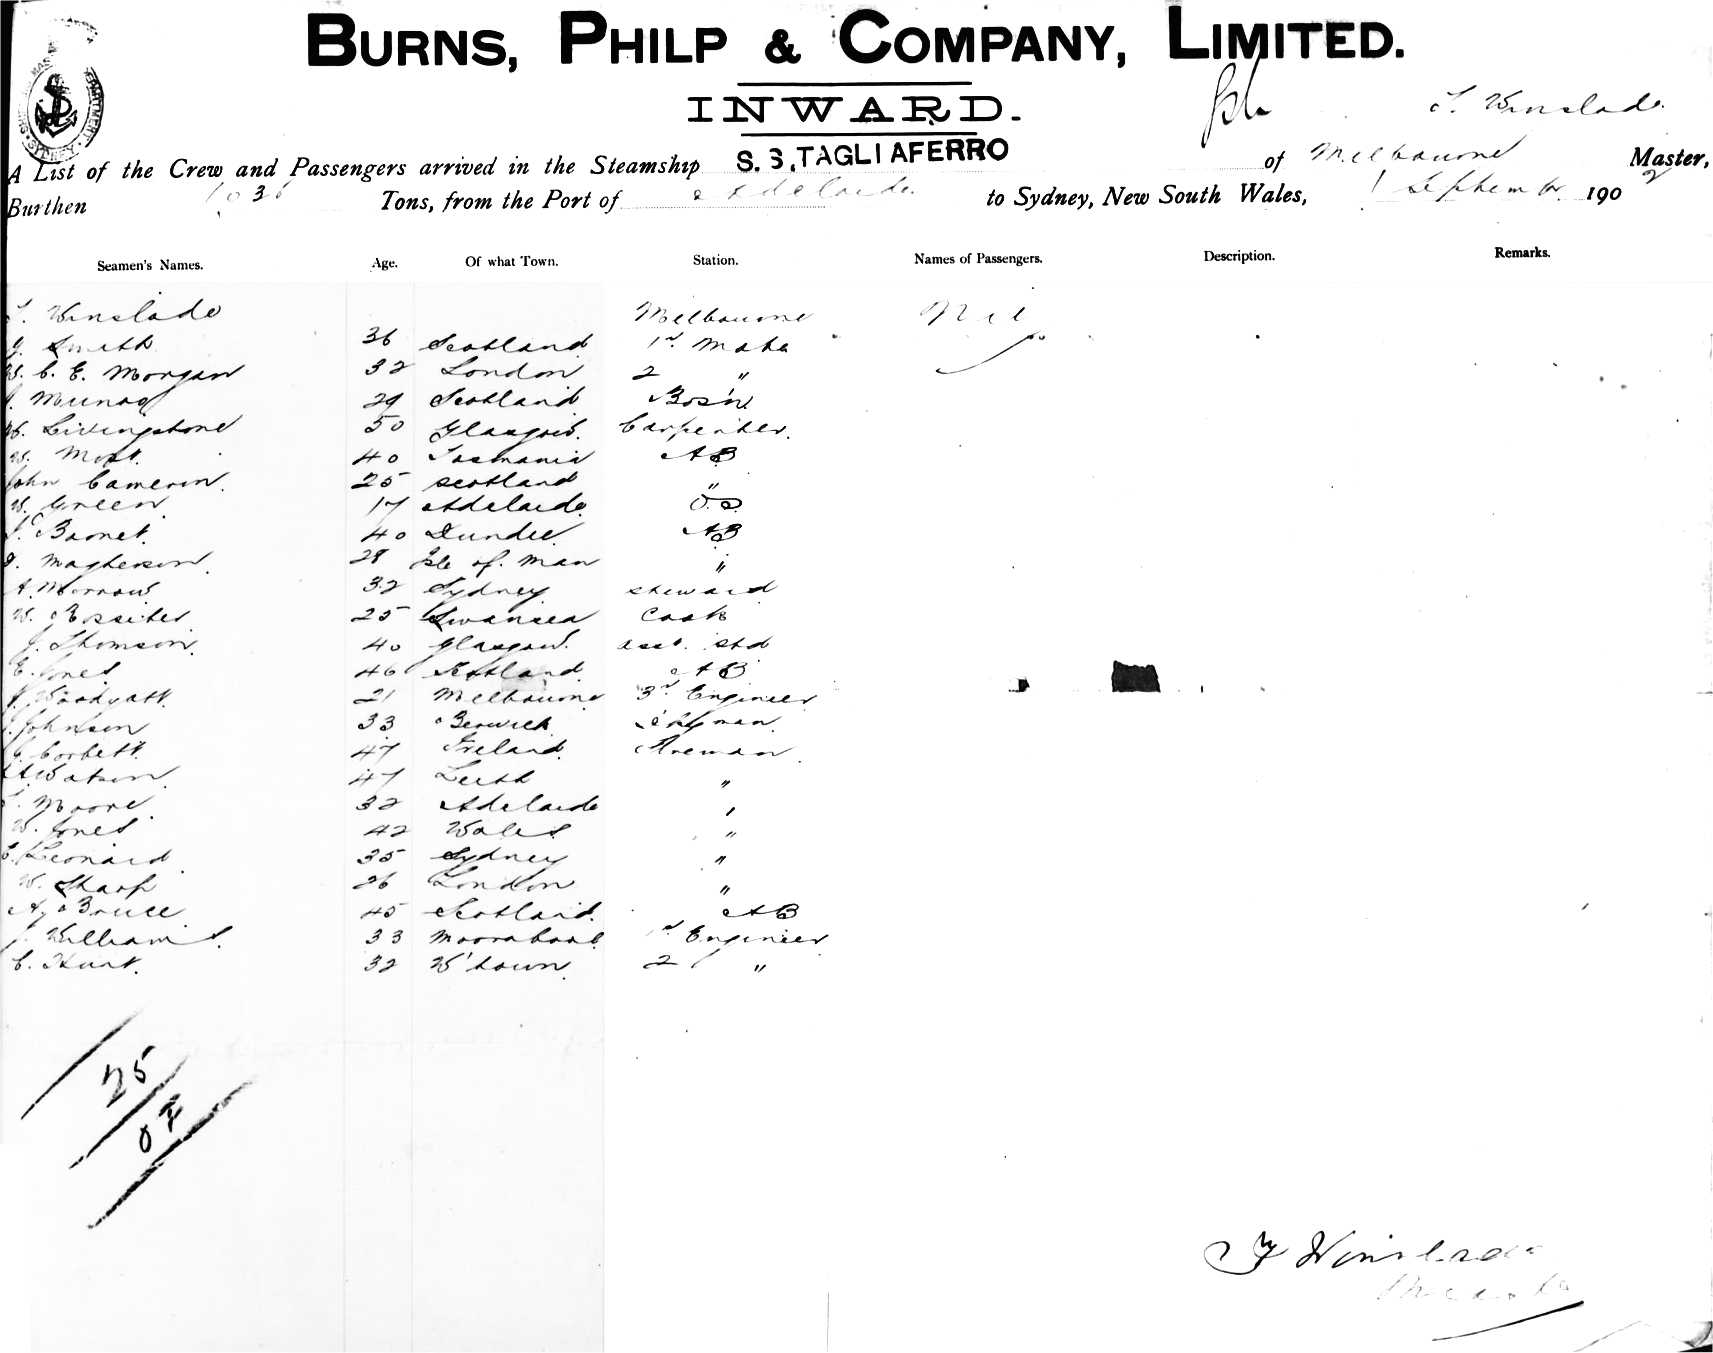 BURNS, PHILP & COMPANY, LIMITED.
INWARD.
T. Winslade
A List of the Crew and Passengers arrived in the Steamship S.S. TAGLIAFERRO of Melbourne Master,
Burthen 1036 Tons, from the Port of Adelaide to Sydney, New South Wales, 1 September 1902
Seamen's Names. Age. Of what Town. Station. Names of Passengers. Description. Remarks.
T. Winslade Melbourne Nil
Smith 36 Scotland 1st Mate
C. E. Morgan 32 London 2 "
Munro 29 Scotland Bos'n
Livingstone 50 Glasgow. Carpenter.
W. 40 Tasmania AB
John Cameron. 25 Scotland "
W. Green 17 Adelaide O.S.
Barnet. 40 Dundee AB
28 Isle of Man "
A. Morrow 32 Sydney Steward
W. Rossiter 25 Swansea Cook
J. Thomson. 40 Glasgow. asst. Std
E. Jones 46 Scotland. AB
Woodyatt. 21 Melbourne 3rd Engineer
Johnson 33 Berwick
Corbett. 47 Ireland. Fireman
Watson 47 Leith "
Moore 32 Adelaide "
W. Jones 42 Wales "
Leonard 35 Sydney "
W. Sharp 26 London "
A. Bruce 45 Scotland. AB
Williams. 33 Moorabool 1st Engineer
C. Hunt. 32 W'town. 2 "
25
T Winslade